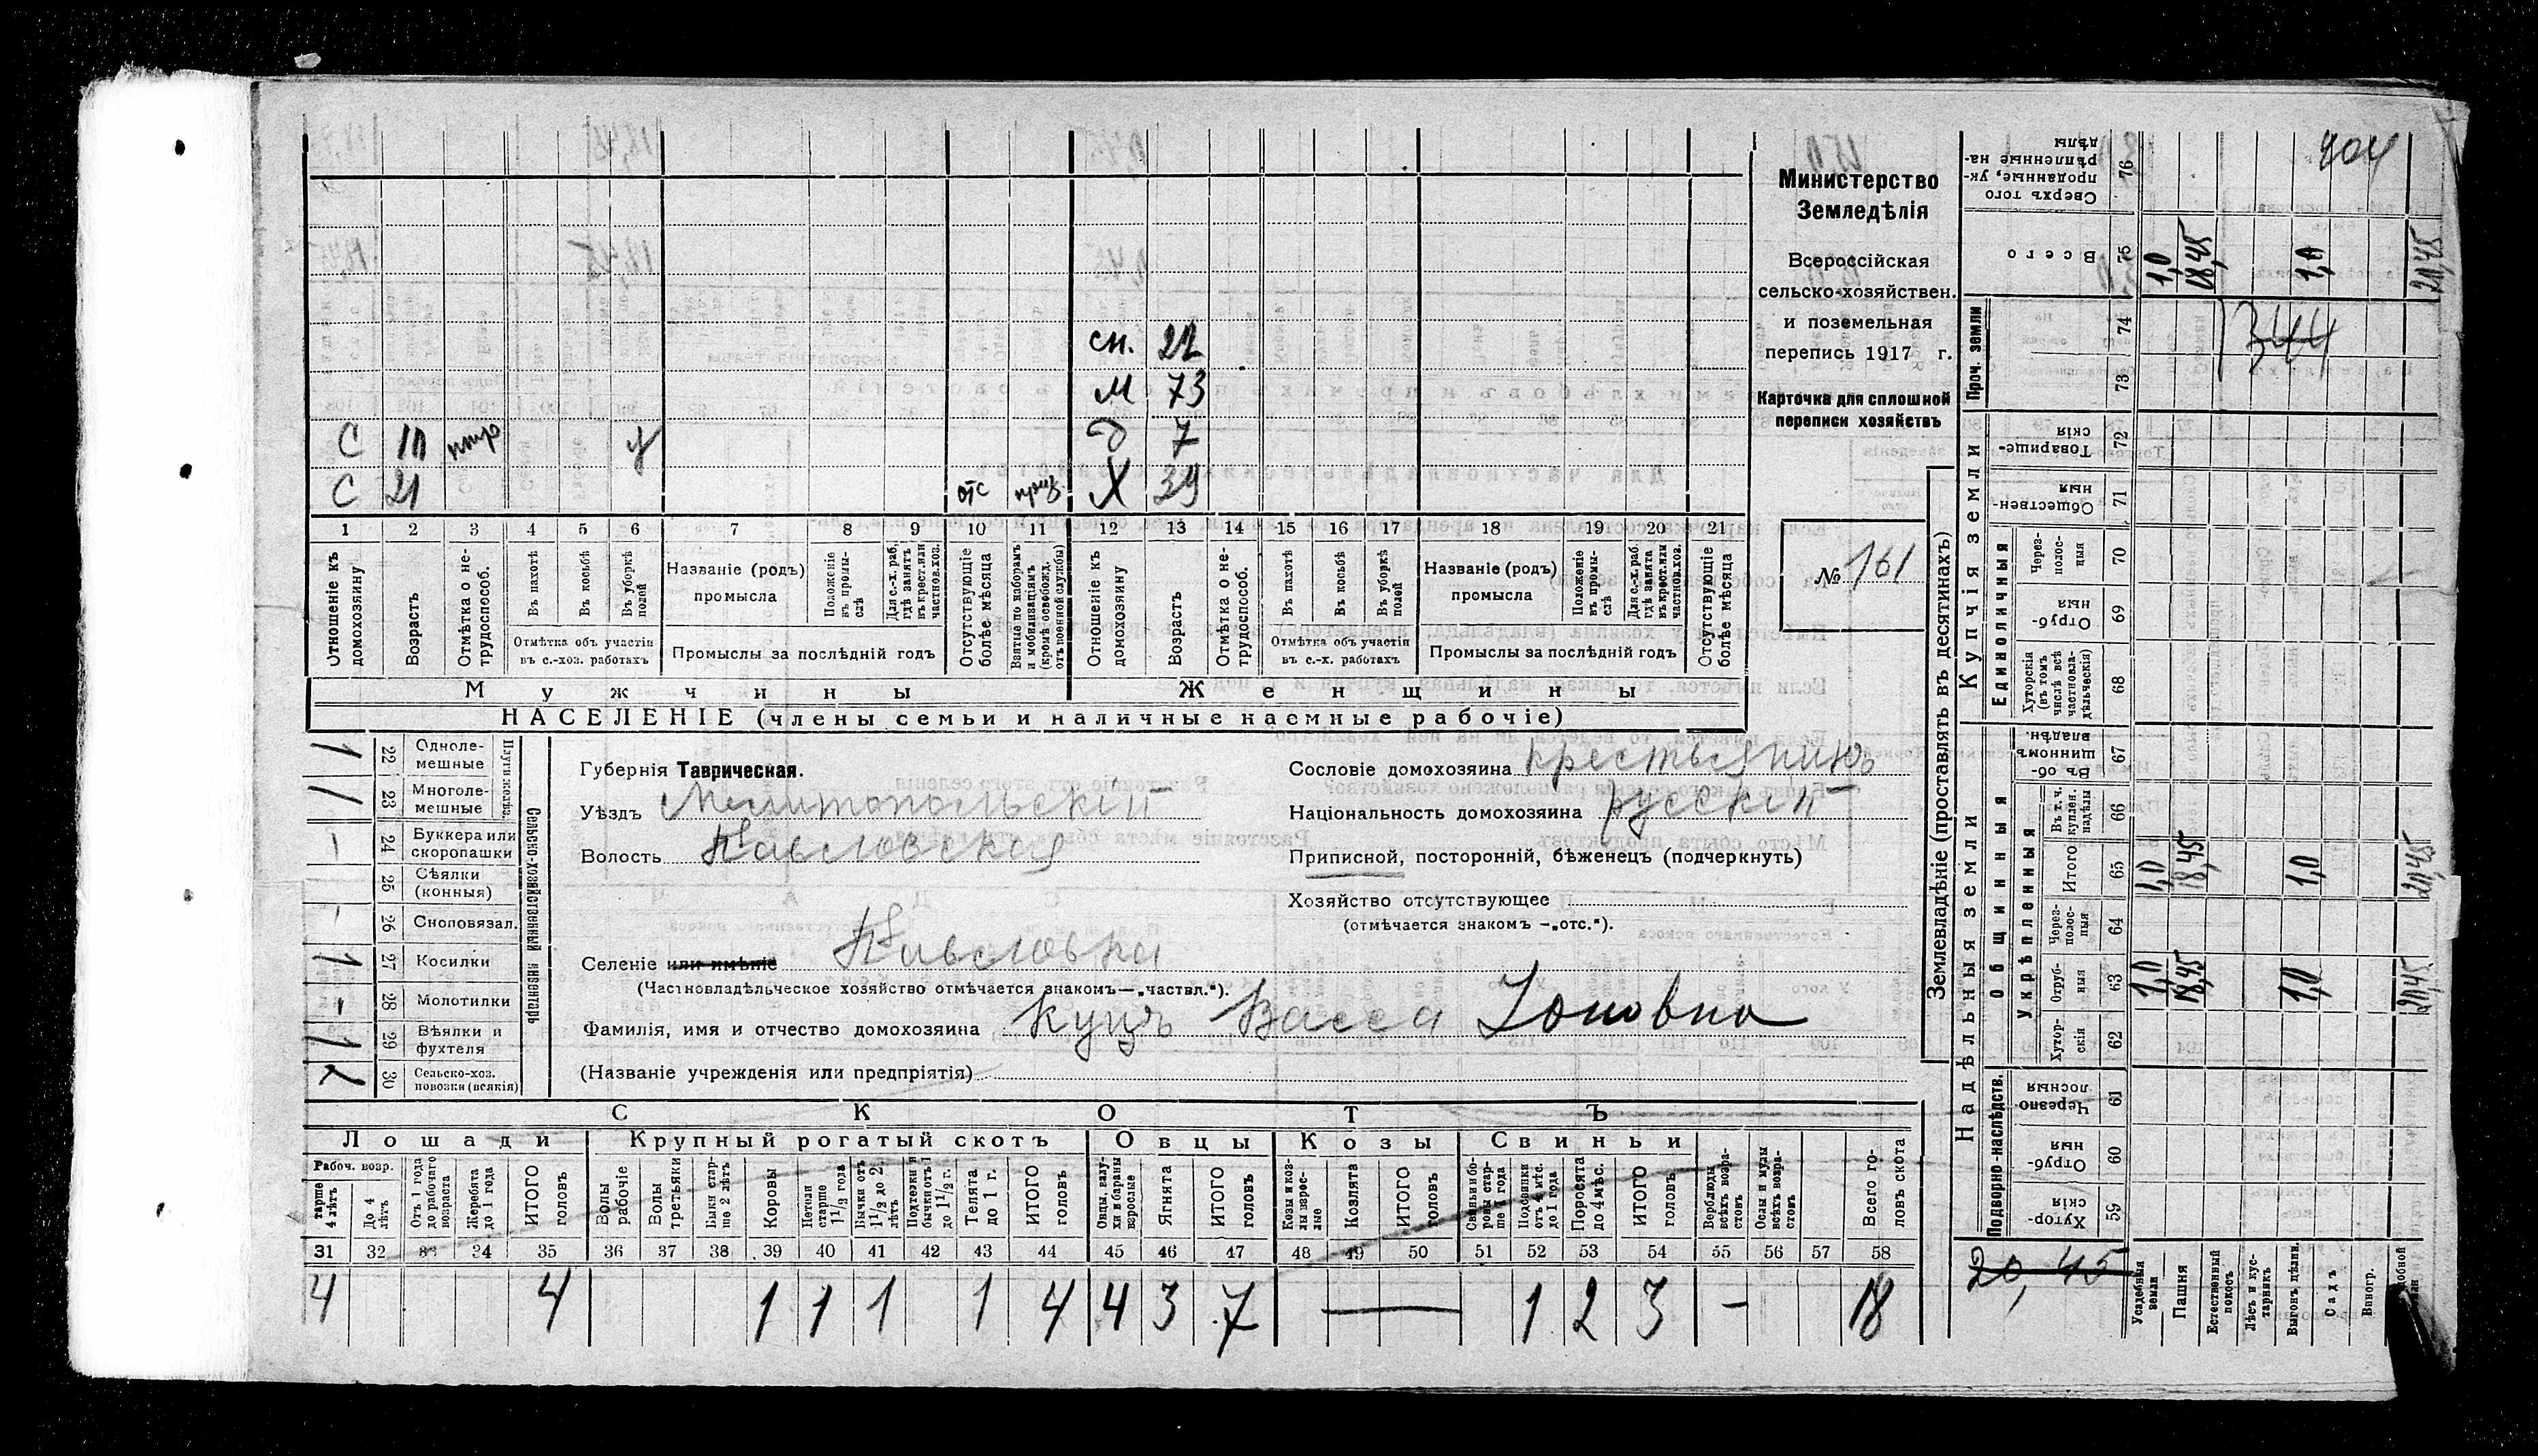 сн. 22
М 73
С 10 нтр у д 7
С 21 отс приз. Х 39
1 2 3 4 5 6 7 8 9 10 11 12 13 14 15 16 17 18 19 20 21
Отношеніе къ домохозяину
Возрастъ
Отмѣтка о не-трудоспособ.
Въ пахотѣ
Въ косьбѣ
Въ уборкѣ полей
Отмѣтка объ участіи въ с.-хоз. работахъ
Названіе (родъ) промысла
Положеніе въ промы-слѣ
Для с.-х. раб. гдѣ занятъ въ крест. или частнов. хоз.
Промыслы за послѣдній годъ
Отсутствующіе болѣе мѣсяца
Взятые по наборамъ и мобилизаціямъ (кромѣ освобожд. отъ военной службы)
Отношеніе къ домохозяину
Возрастъ
Отмѣтка о не-трудоспособ.
Въ пахотѣ
Въ косьбѣ
Въ уборкѣ полей
Отмѣтка объ участіи въ с.-х. работахъ
Названіе (родъ) промысла
Положеніе въ промы-слѣ
Для с.-х. раб. гдѣ занята въ крест. или частнов. хоз.
Промыслы за послѣдній годъ
Отсутствующіе болѣе мѣсяца
Мужчины Женщины
НАСЕЛЕНІЕ (члены семьи и наличные наемные рабочіе)
Министерство
Земледѣлія
Всероссійская
сельско-хозяйствен.
и поземельная
перепись 1917 г.
Карточка для сплошной
переписи хозяйствъ
№ 161
1 22 Одноле-мешные
1 23 Многоле-мешные
24 Буккера или скоропашки
25 Сѣялки (конныя)
26 Сноповязал.
1 27 Косилки
28 Молотилки
1 29 Вѣялки и фухтеля
30 Сельско-хоз. повозки (всякія)
Сельско-хозяйственный инвентарь
Губернія Таврическая.
Уѣздъ Мелитопольскій
Волость Павловская
Селеніе или имѣніе Павловка
(Частновладѣльческое хозяйство отмѣчается знакомъ—„частвл.“).
Фамилія, имя и отчество домохозяина Куцъ Васса Іоновна
(Названіе учрежденія или предпріятія)
Сословіе домохозяина крестьянинъ
Національность домохозяина русскій
Приписной, посторонній, бѣженецъ (подчеркнуть)
Хозяйство отсутствующее
(отмѣчается знакомъ -„отс.“).
СКОТЪ
Лошади Крупный рогатый скотъ Овцы Козы Свиньи
Рабоч. возр.
тарше 4 лѣтъ
До 4 лѣтъ
Отъ 1 года до рабочаго возраста
Жеребята до 1 года
ИТОГО головъ
Волы рабочіе
Волы третьяки
Быки стар-ше 2 лѣтъ
Коровы
Нетели старше 1½ года
Бычки отъ 1½ до 2 лѣтъ
Подтелки и бычки отъ 1 до 1½ г.
Телята до 1 г.
ИТОГО головъ
Овцы, валу-хи и бараны взрослые
Ягнята
ИТОГО головъ
Козы и коз-лы взрос-лые
Козлята
ИТОГО головъ
Свиньи и бо-ровы стар-ше 1 года
Подсвинки отъ 4 мѣс. до 1 года
Поросята до 4 мѣс.
ИТОГО головъ
Верблюды всѣхъ возра-стовъ
Ослы и мулы всѣхъ возра-стовъ
Всего го-ловъ скота
31 32 33 34 35 36 37 38 39 40 41 42 43 44 45 46 47 48 49 50 51 52 53 54 55 56 57 58
4 4 1 1 1 1 4 4 3 7 — 1 2 3 – 18
Землевладѣніе (проставлять въ десятинахъ)
Надѣльныя земли Купчія земли Проч. земли
Подворно-наслѣдств. Общинныя Укрѣпленныя Единоличныя
Сверхъ того проданные, ук-рѣпленные на-дѣлы 76 404
Всего 75 1,0 18,45 1,0 20,45
74 344
73
Товарище-скія 72
Обществен-ныя 71
Через-полос-ныя 70
Отруб-ныя 69
Хуторскія (въ томъ числѣ всѣ частновла-дѣльческія) 68
Въ об-щинномъ владѣн. 67
Въ т. ч. куплен. надѣлы 66
Итого 65 1,0 18,45 1,0 20,45
Через-полос-ныя 64
Отруб-ныя 63 1,0 18,45 1,0 20,45
Хутор-скія 62
Черезпо-лосныя 61
Отруб-ныя 60
Хутор-скія 59
20,45
Усадебныя земли
Пашня
Естественный покосъ
Лѣсъ и кус-тарникъ
Выгонъ
Садъ
Виногр.